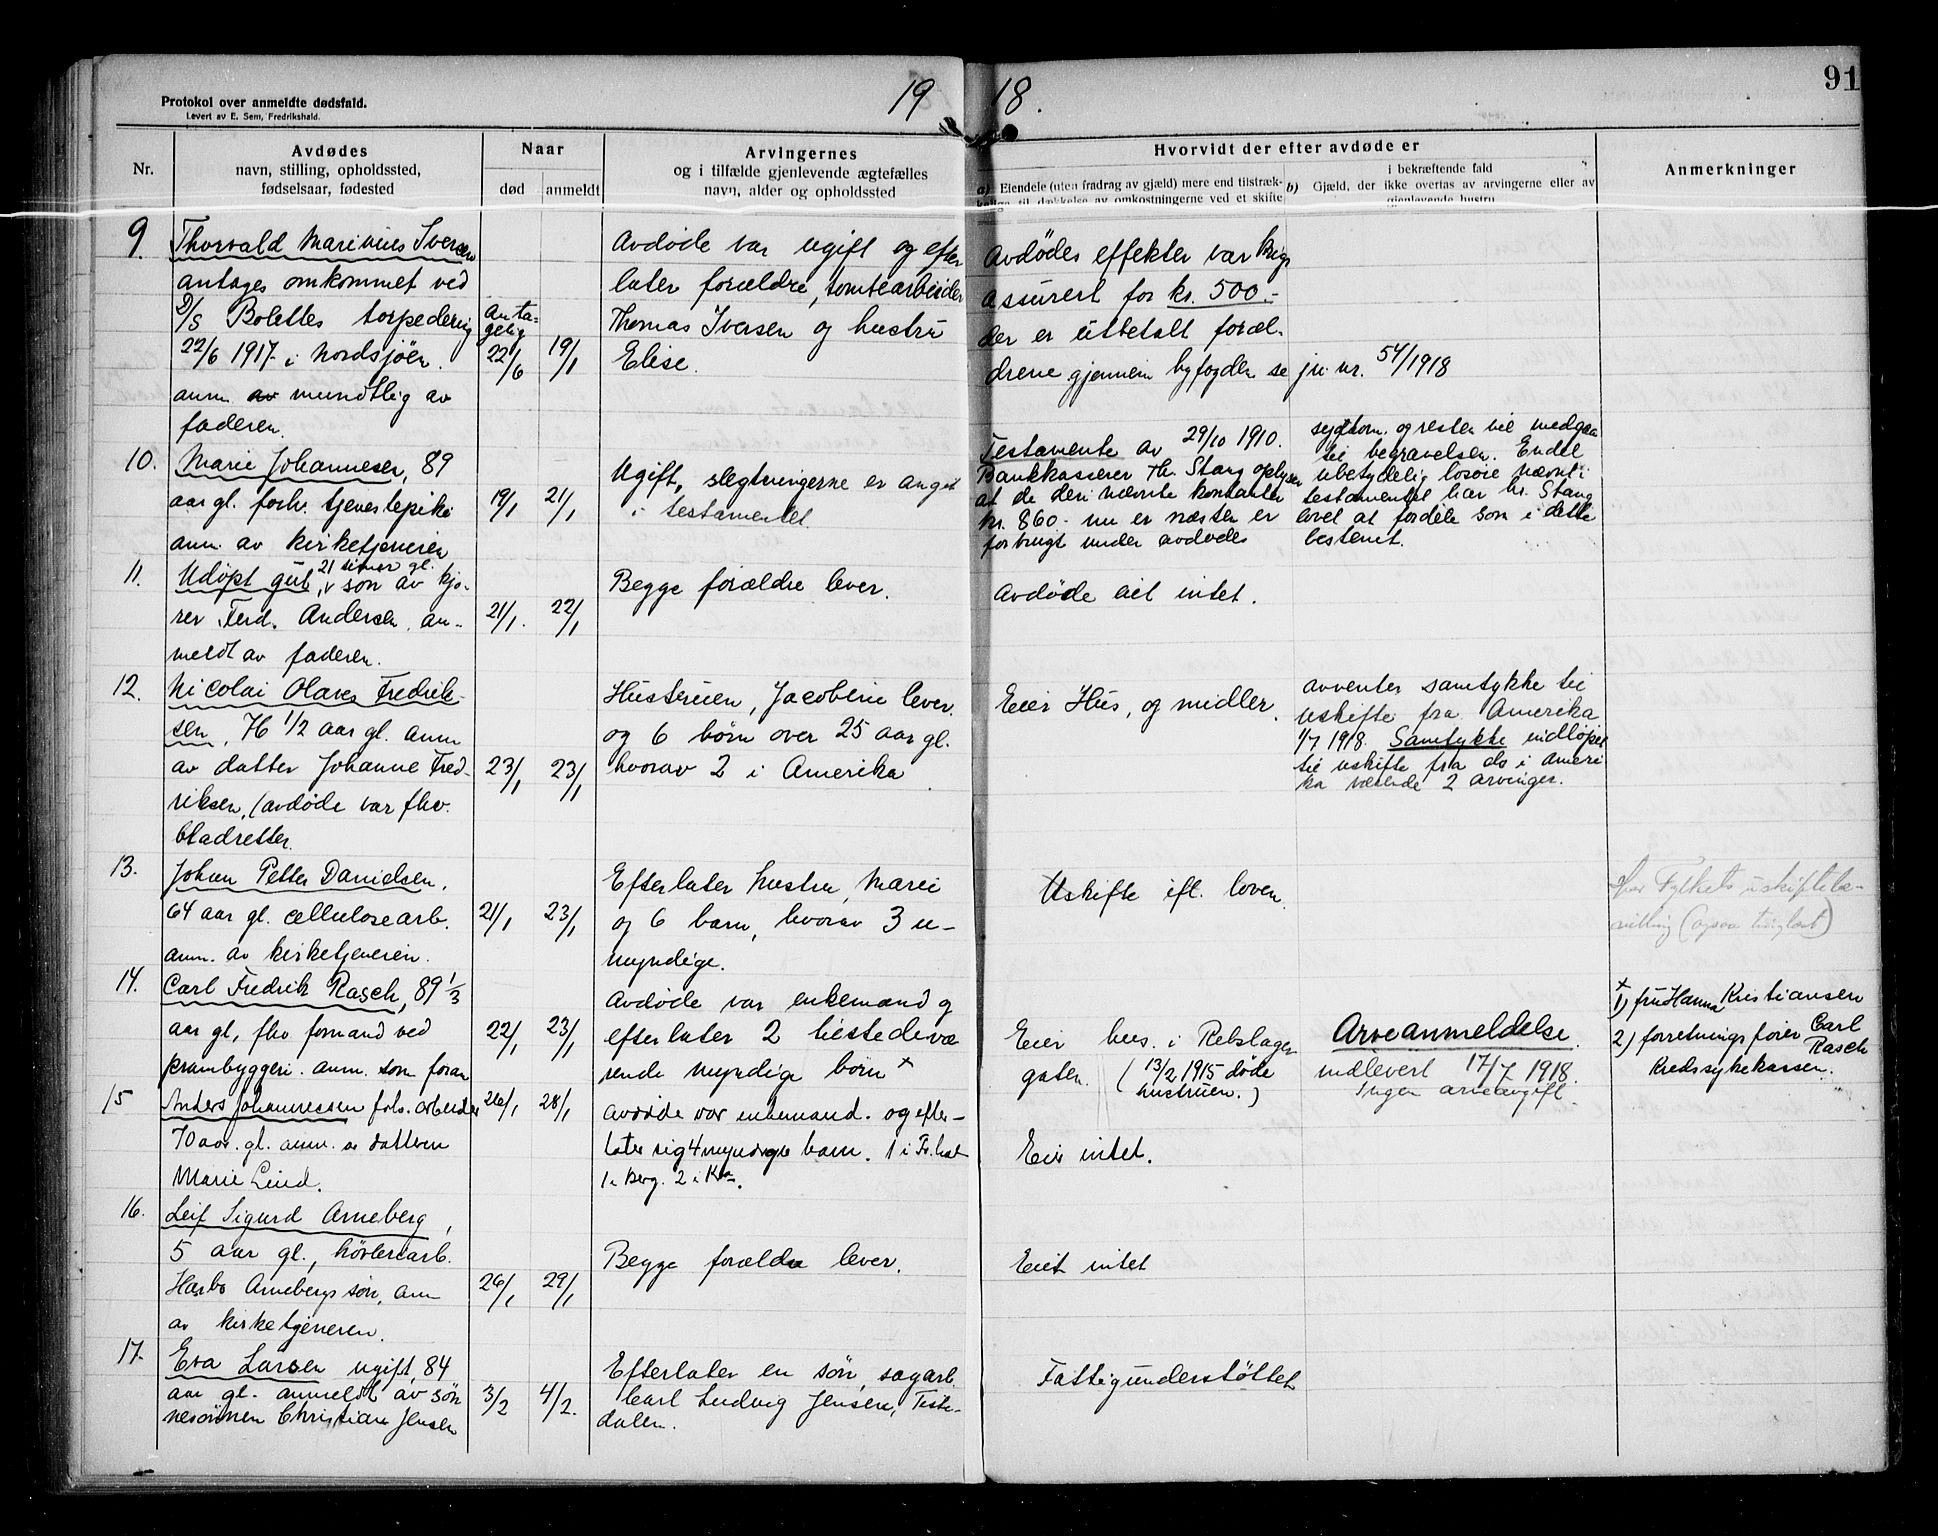 1918.
91
Protokol over anmeldte dødsfald.
Levert av E. Sem, Fredrikshald.
Nr.
Avdødes
navn, stilling, opholdssted,
fødselsaar, fødested
Naar
død
anmeldt
Arvingernes
og i tilfælde gjenlevende ægtefælles
navn, alder og opholdssted
Hvorvidt der efter avdøde er
a) Eiendele (uten fradrag av gjæld) mere end tilstræk-
kelige til dækkelse av omkostningerne ved et skifte
b) Gjæld, der
i bekræftende fald
ikke overtas av arvingerne eller av
gjenlevende hustru
Anmerkninger
9.
Thorvald Marinius Iversen
antages omkommet ved
D/S Bolettes torpedering
22/6 1917 i Nordsjøen.
anm. av mundtlig av
faderen.
Anta-
gelig
22/6
19/1
Avdøde var ugift og efter
later forældre, tomtearbeider
Thomas Iversen og hustru
Elise.
Avdødes effekter var krigs
assurert for kr. 500.-
der er utbetalt foræl-
drene gjennem byfogden se jn. nr. 54/1918
10.
Marie Johannesen, 89
aar gl. forh. tjenestepike
anm. av kirketjeneren
19/1
21/1
Ugift, slegtningerne er anget
i testamentet.
Testamente av 29/10 1910.
Bankkasserer Th. Stang oplyser
at de deri nævnte kontanter
kr. 860.- nu er næsten er
forbrugt under avdødes
sygdom. og resten vil medgaa
til begravelsen. Endel
ubetydelig losøre nævnt i
testamentet har hr. Stang
lovet at fordele som i dette
bestemt.
11.
Udøpt gut, 21 timer gl. søn av kjø-
rer Ferd. Andersen, an-
meldt av faderen.
21/1.
22/1
Begge forældre lever.
Avdøde eiet intet.
12.
Nicolai Olaves Fredrik-
sen, 76 1/2 aar gl. anm
av datter Johanne Fred-
riksen, (avdøde var fhv.
23/1
23/1
Hustruen, Jacobine lever.
og 6 børn over 25 aar gl.
hvorav 2 i Amerika
Eier Hus, og midler.
avventer samtykke til
uskifte fra Amerika
1/7 1918. Samtykke indløpet
til uskifte fra de i Ameri
ka værende 2 arvinger.
13.
Johan Petter Danielsen,
64 aar gl. cellulosearb.
anm. av kirketjeneren.
21/1
23/1
Efterlater hustru Marie
og 6 barn, hvorav 3 u-
myndige.
Uskifte ifl. loven.
Har Fylkets uskiftebe-
villing (ogsaa tinglæst)
14.
Carl Fredrik Rasch, 89 1/3
aar gl, fhv formand ved
prambyggeri. anm. som foran
22/1
23/1
Avdøde var enkemand og
efterlater 2 tilstedevæ
rende myndige børn x
Eier hus. i Rebslager
gaten. (13/2 1915 døde
hustruen.)
Arveanmeldelse.
indlevert 17/7 1918.
Ingen arveavgift.
x
1) fru Hanna Kristiansen
2) forretningsfører Carl
Rasch
Kredssykekassen.
15
Anders Johannessen fabr. arbeider
70 aar. gl. anm. av datteren
Marie Lind.
26/1
28/1
avdøde var enkemand. og efter-
later sig 4 myndige barn. 1 i Fr.hald
1 i Berg. 2 i Kra.
Eier intet.
16.
Leif Sigurd Arneberg,
5 aar gl., høvleriarb.
Arnebergs søn, anm
av kirketjeneren.
26/1
29/1
Begge forældre lever.
Eiet intet
17.
Eva Larsen ugift, 84
aar gl. anmeldt av søn
nesønnen Christian Jensen
3/2
4/2.
Efterlater en søn, sagarb.
Carl Ludvig Jensen, Tiste-
dalen.
Fattigunderstøttet